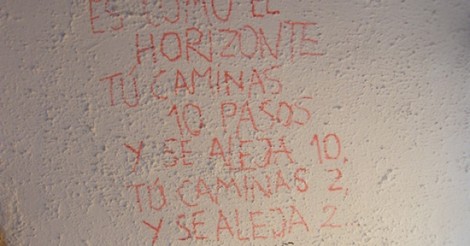 ES COMO EL
HORIZONTE
TÚ CAMINAS
10 PASOS
Y SE ALEJA 10,
TÚ CAMINAS 2,
Y SE ALEJA 2